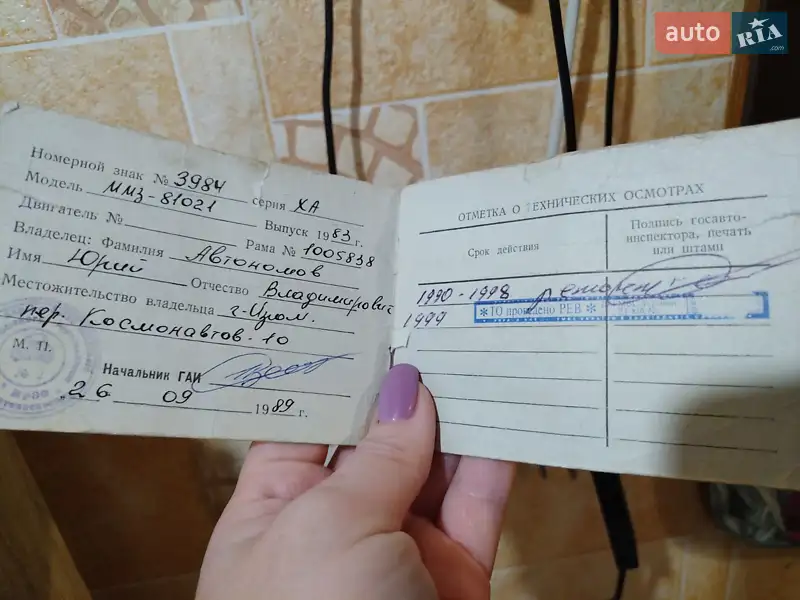 auto RIA .com
Номерной знак № 3984 серия ХА
Модель ММЗ-81021
Двигатель № Выпуск 1983 г.
Рама № 1005838
Владелец: Фамилия Автономов
Имя Юрий Отчество Владимирович
Местожительство владельца г. Изюм.
пер. Космонавтов-10
М. П.
Начальник ГАИ
26 09 1989 г.
ОТМЕТКА О ТЕХНИЧЕСКИХ ОСМОТРАХ
Срок действия
Подпись госавто-
инспектора, печать
или штамп
1990-1998
1999
*ТО проведено РЕВ*